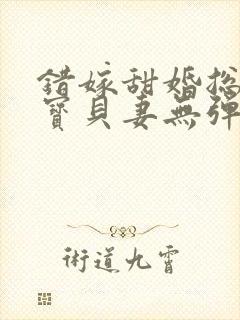 錯嫁甜婚總
寶貝妻無彈
術道九霄